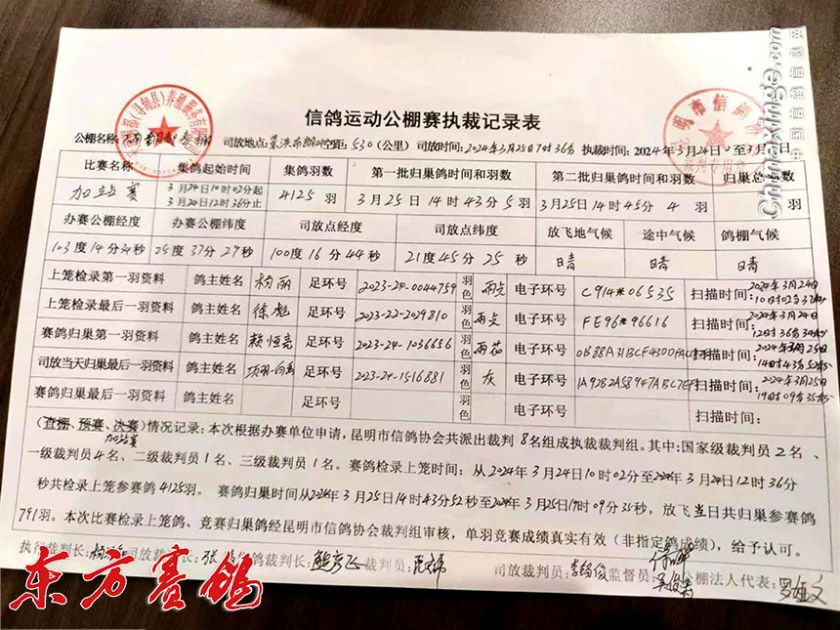 信鸽运动公棚赛执裁记录表
公棚名称: 司放地点: 空距: 530(公里) 司放时间: 2024年3月25日7时36分 执裁时间: 2024年3月24日
比赛名称 集鸽起始时间 集鸽羽数 第一批归巢鸽时间和羽数 第二批归巢鸽时间和羽数 归巢总羽数
加站赛 3月24日10时02分起 3月24日12时36分止 4125羽 3月25日14时43分5羽 3月25日14时45分4羽 羽
办赛公棚经度 办赛公棚纬度 司放点经度 司放点纬度 放飞地气候 途中气候 鸽棚气候
103度14分 秒 25度37分27秒 100度16分44秒 21度45分25秒 晴 晴 晴
上笼检录第一羽资料 鸽主姓名 杨丽 足环号 2023-24-0044759 羽色 雨点 电子环号 C914*06535 扫描时间: 2024年3月24日10时02分
上笼检录最后一羽资料 鸽主姓名 徐彪 足环号 2023-22-2029810 羽色 雨点 电子环号 FE96*96616 扫描时间: 2024年3月24日12时36分
赛鸽归巢第一羽资料 鸽主姓名 足环号 2023-24-1036656 羽色 电子环号 扫描时间: 2024年3月25日14时43分52秒
司放当天归巢最后一羽资料 鸽主姓名 足环号 2023-24-1516881 羽色 灰 电子环号 扫描时间: 2024年3月25日19时09分35秒
赛鸽归巢最后一羽资料 鸽主姓名 足环号 羽色 电子环号 扫描时间:
(查棚、预赛、决赛)情况记录:本次根据办赛单位申请,昆明市信鸽协会共派出裁判8名组成执裁裁判组。其中:国家级裁判员2名、
加站赛
一级裁判员4名、二级裁判员1名、三级裁判员1名。赛鸽检录上笼时间:从2024年3月24日10时02分至2024年3月24日12时36分
秒共检录上笼参赛鸽4125羽。赛鸽归巢时间从2024年3月25日14时43分52秒至2024年3月25日19时09分35秒,放飞当日共归巢参赛鸽
791羽。本次比赛检录上笼鸽、竞赛归巢鸽经昆明市信鸽协会裁判组审核,单羽竞赛成绩真实有效(非指定鸽成绩),给予认可。
执行裁判长: 司放裁判长: 裁判长: 裁判员: 司放裁判员: 监督员: 公棚法人代表:
东方赛鸽
Chinaxinge.com
中国信鸽信息网